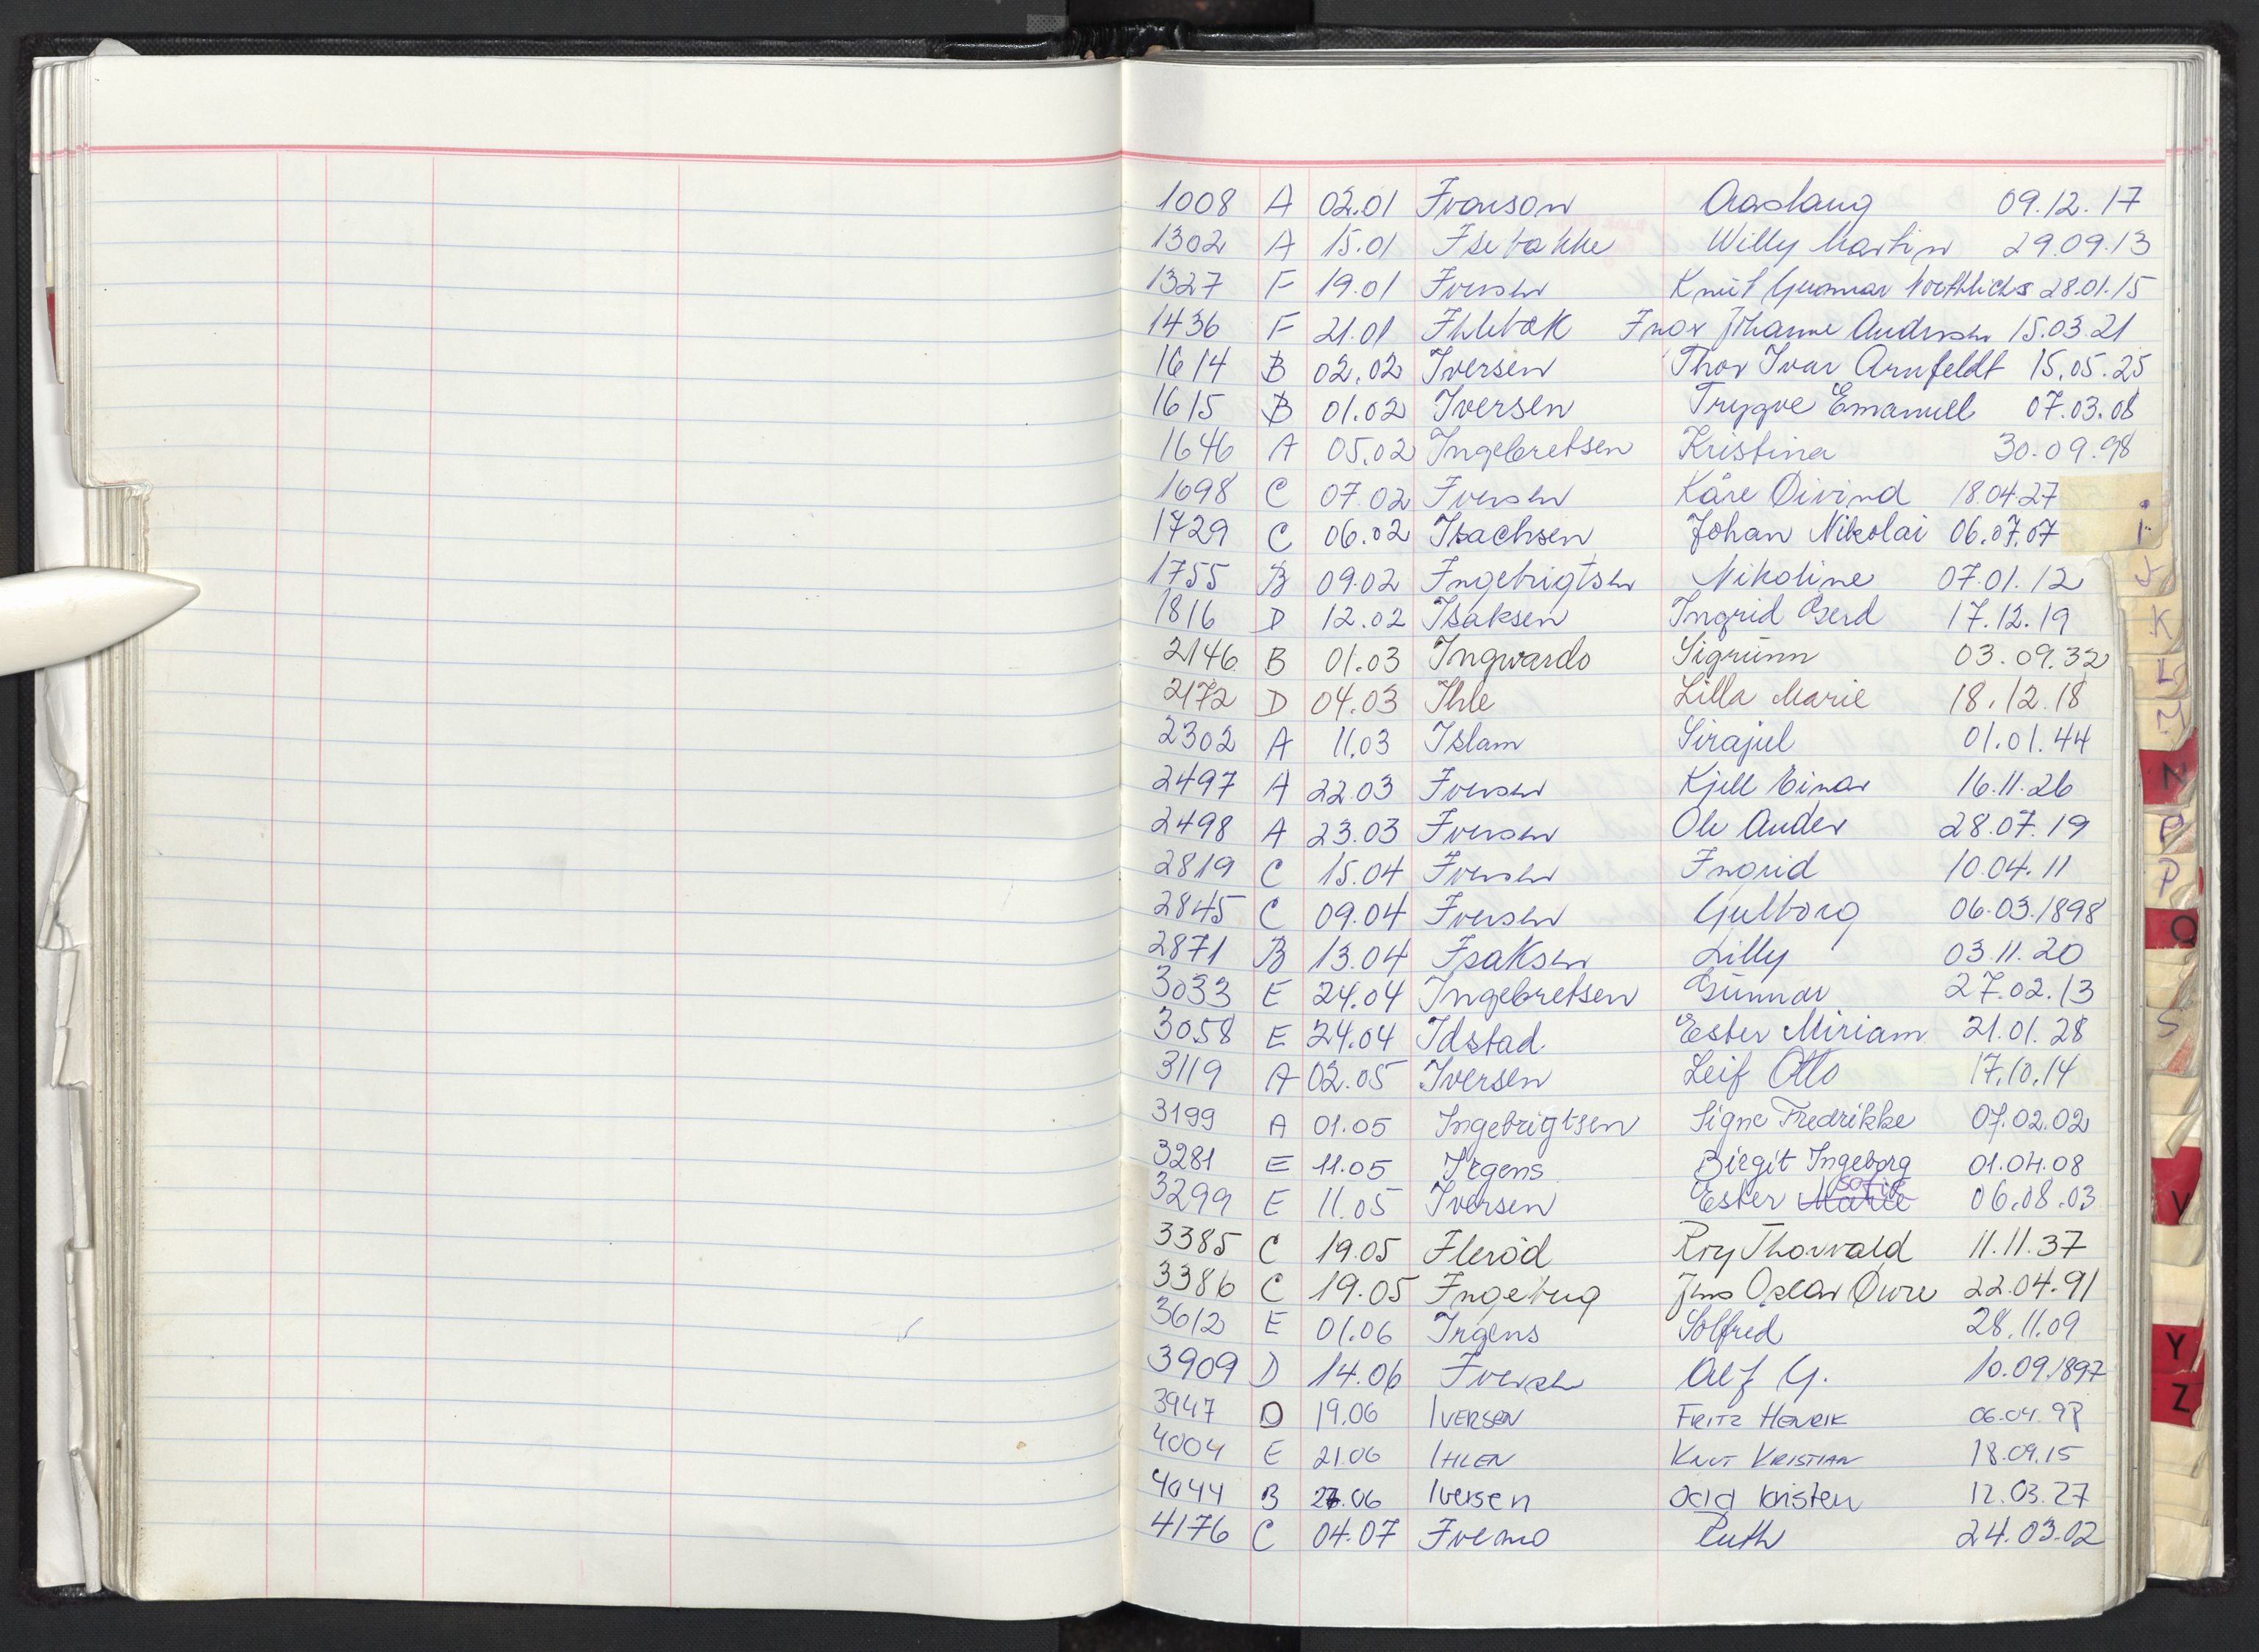 1008 A 02.01 Ivarson Aaslaug 09.12.17
1302 A 15.01 Isebakke Willy Martin 29.09.13
1327 F 19.01 Iversen Knut Gunnar 28.01.15
1436 F 21.01 Ihlebæk Inor Johanne Andersen 15.03.21
1614 B 02.02 Iversen Thor Ivar Arnfeldt 15.05.25
1615 B 01.02 Iversen Trygve Emanuell 07.03.08
1646 A 05.02 Ingebretsen Kristina 30.09.98
1698 C 07.02 Iversen Kåre Øivind 18.04.27
1729 C 06.02 Isachsen Johan Nikolai 06.07.07
1755 B 09.02 Ingebrigtsen Nikoline 07.01.12
1816 D 12.02 Isaksen Ingrid Gerd 17.12.19
2146 B 01.03 Ingwardo Sigrunn 03.09.32
2172 D 04.03 Ihle Lilla Marie 18.12.18
2302 A 11.03 Islam Sirajul 01.01.44
2497 A 22.03 Iversen Kjell Einar 16.11.26
2498 A 23.03 Iversen Ole Ander 28.07.19
2819 C 15.04 Iversen Ingrid 10.04.11
2845 C 09.04 Iversen Gulborg 06.03.1898
2871 B 13.04 Isaksen Lilly 03.11.20
3033 E 24.04 Ingebretsen Gunnar 27.02.13
3058 E 24.04 Idstad Ester Miriam 21.01.28
3119 A 02.05 Iversen Leif Otto 17.10.14
3199 A 01.05 Ingebrigtsen Signe Fredrikke 07.02.02
3281 E 11.05 Irgens Birgit Ingeborg 01.04.08
3299 E 11.05 Iversen Ester Marie Sofie 06.08.03
3385 C 19.05 Ilerød Roy Thorvald 11.11.37
3386 C 19.05 Ingebrig Jens Oscar Øvre 22.04.91
3612 E 01.06 Irgens Solfrid 28.11.09
3909 D 14.06 Iversen Alf G. 10.09.1897
3947 D 19.06 IVERSEN FRITZ HENRIK 06.04.98
4004 E 21.06 IHLEN KNUT KRISTIAN 18.09.15
4044 B 27.06 Iversen Odd Kristen 12.03.27
4176 C 04.07 Ivemo Ruth 24.03.02
i
J
K
L
M
N
O
P
Q
S
V
Y
Z